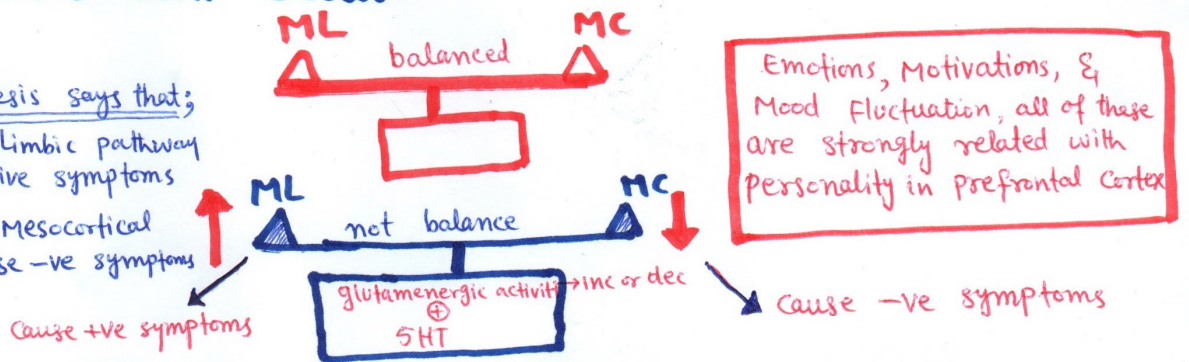 ML
MC
balanced
says that;
Limbic pathway
symptoms
Mesocortical
-ve symptoms
ML
MC
not balance
glutamenergic activiti → inc or dec
⊕
5HT
Cause +ve symptoms
Cause -ve symptoms
Emotions, Motivations, &
Mood Fluctuation, all of these
are strongly related with
personality in prefrontal Cortex